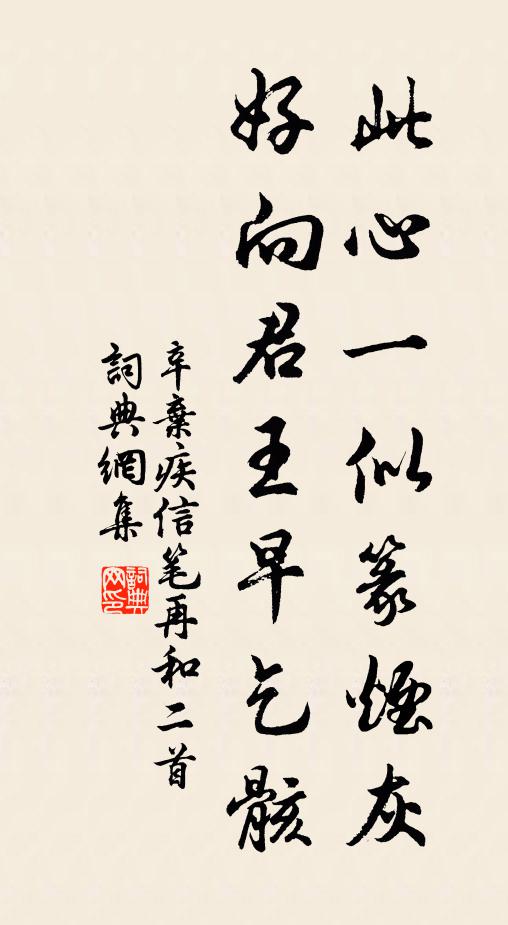 此心一似篆煙灰
好向君王早乞骸
辛棄疾信笔再和二首
詞典網集
詞典
网印